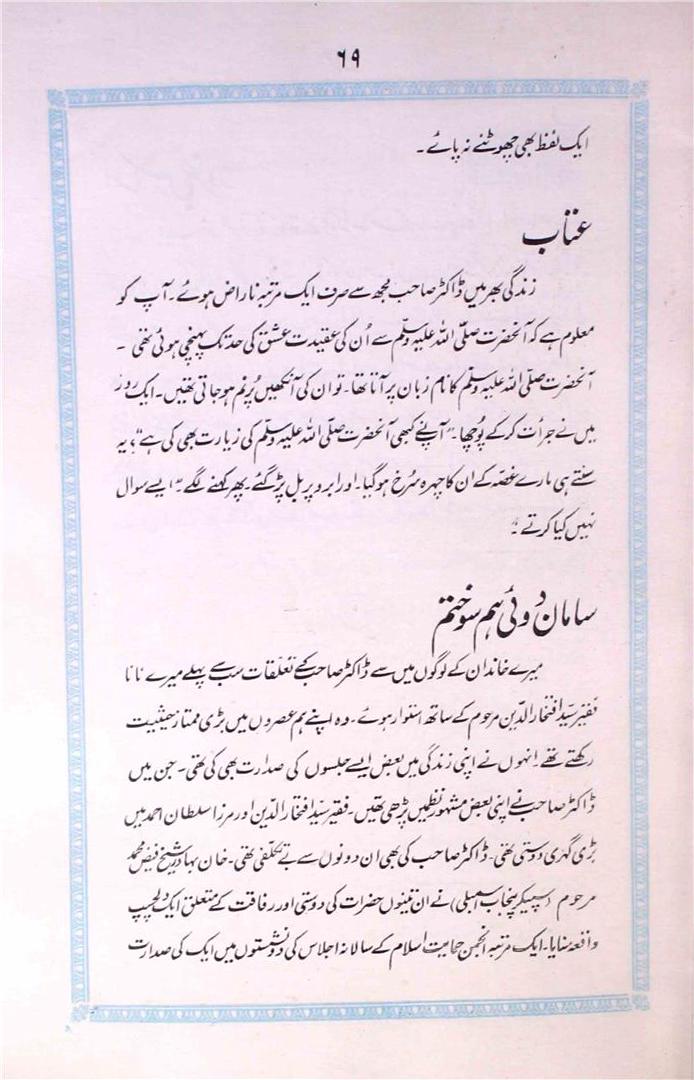 ۶۹
ایک لفظ بھی چھوٹنے نہ پائے۔
عتاب
زندگی بھر میں ڈاکٹر صاحب مجھ سے صرف ایک مرتبہ ناراض ہوئے۔ آپ کو
معلوم ہے کہ آنحضرت صلّی اللہ علیہ وسلّم سے اُن کی عقیدت عشق کی حد تک پہنچی ہوئی تھی۔
آنحضرت صلّی اللہ علیہ وسلّم کا نام زبان پر آتا تھا۔ تو ان کی آنکھیں پُر نم ہو جاتی تھیں۔ ایک روز
میں نے جرأت کر کے پُوچھا۔ "آپ نے کبھی آنحضرت صلّی اللہ علیہ وسلّم کی زیارت بھی کی ہے"؟ یہ
سنتے ہی مارے غصّہ کے ان کا چہرہ سُرخ ہو گیا۔ اور ابرو پر بل پڑ گئے۔ پھر کہنے لگے۔ "ایسے سوال
نہیں کیا کرتے"۔
سامان دوئی ہم سوختم
میرے خاندان کے لوگوں میں سے ڈاکٹر صاحب کے تعلّقات سب سے پہلے میرے نانا
فقیر سیّد افتخار الدّین مرحوم کے ساتھ استوار ہوئے۔ وہ اپنے ہم عصروں میں بڑی ممتاز حیثیت
رکھتے تھے۔ انہوں نے اپنی زندگی میں بعض ایسے جلسوں کی صدارت بھی کی تھی۔ جن میں
ڈاکٹر صاحب نے اپنی بعض مشہور نظمیں پڑھی تھیں۔ فقیر سیّد افتخار الدّین اور مرزا سلطان احمد میں
بڑی گہری دوستی تھی۔ ڈاکٹر صاحب کی بھی ان دونوں سے بے تکلفی تھی۔ خان بہادر شیخ فیض محمّد
مرحوم (سپیکر پنجاب اسمبلی) نے ان تینوں حضرات کی دوستی اور رفاقت کے متعلق ایک دلچسپ
واقعہ سنایا۔ ایک مرتبہ انجمن حمایت اسلام کے سالانہ اجلاس کی دو نشستوں میں ایک کی صدارت